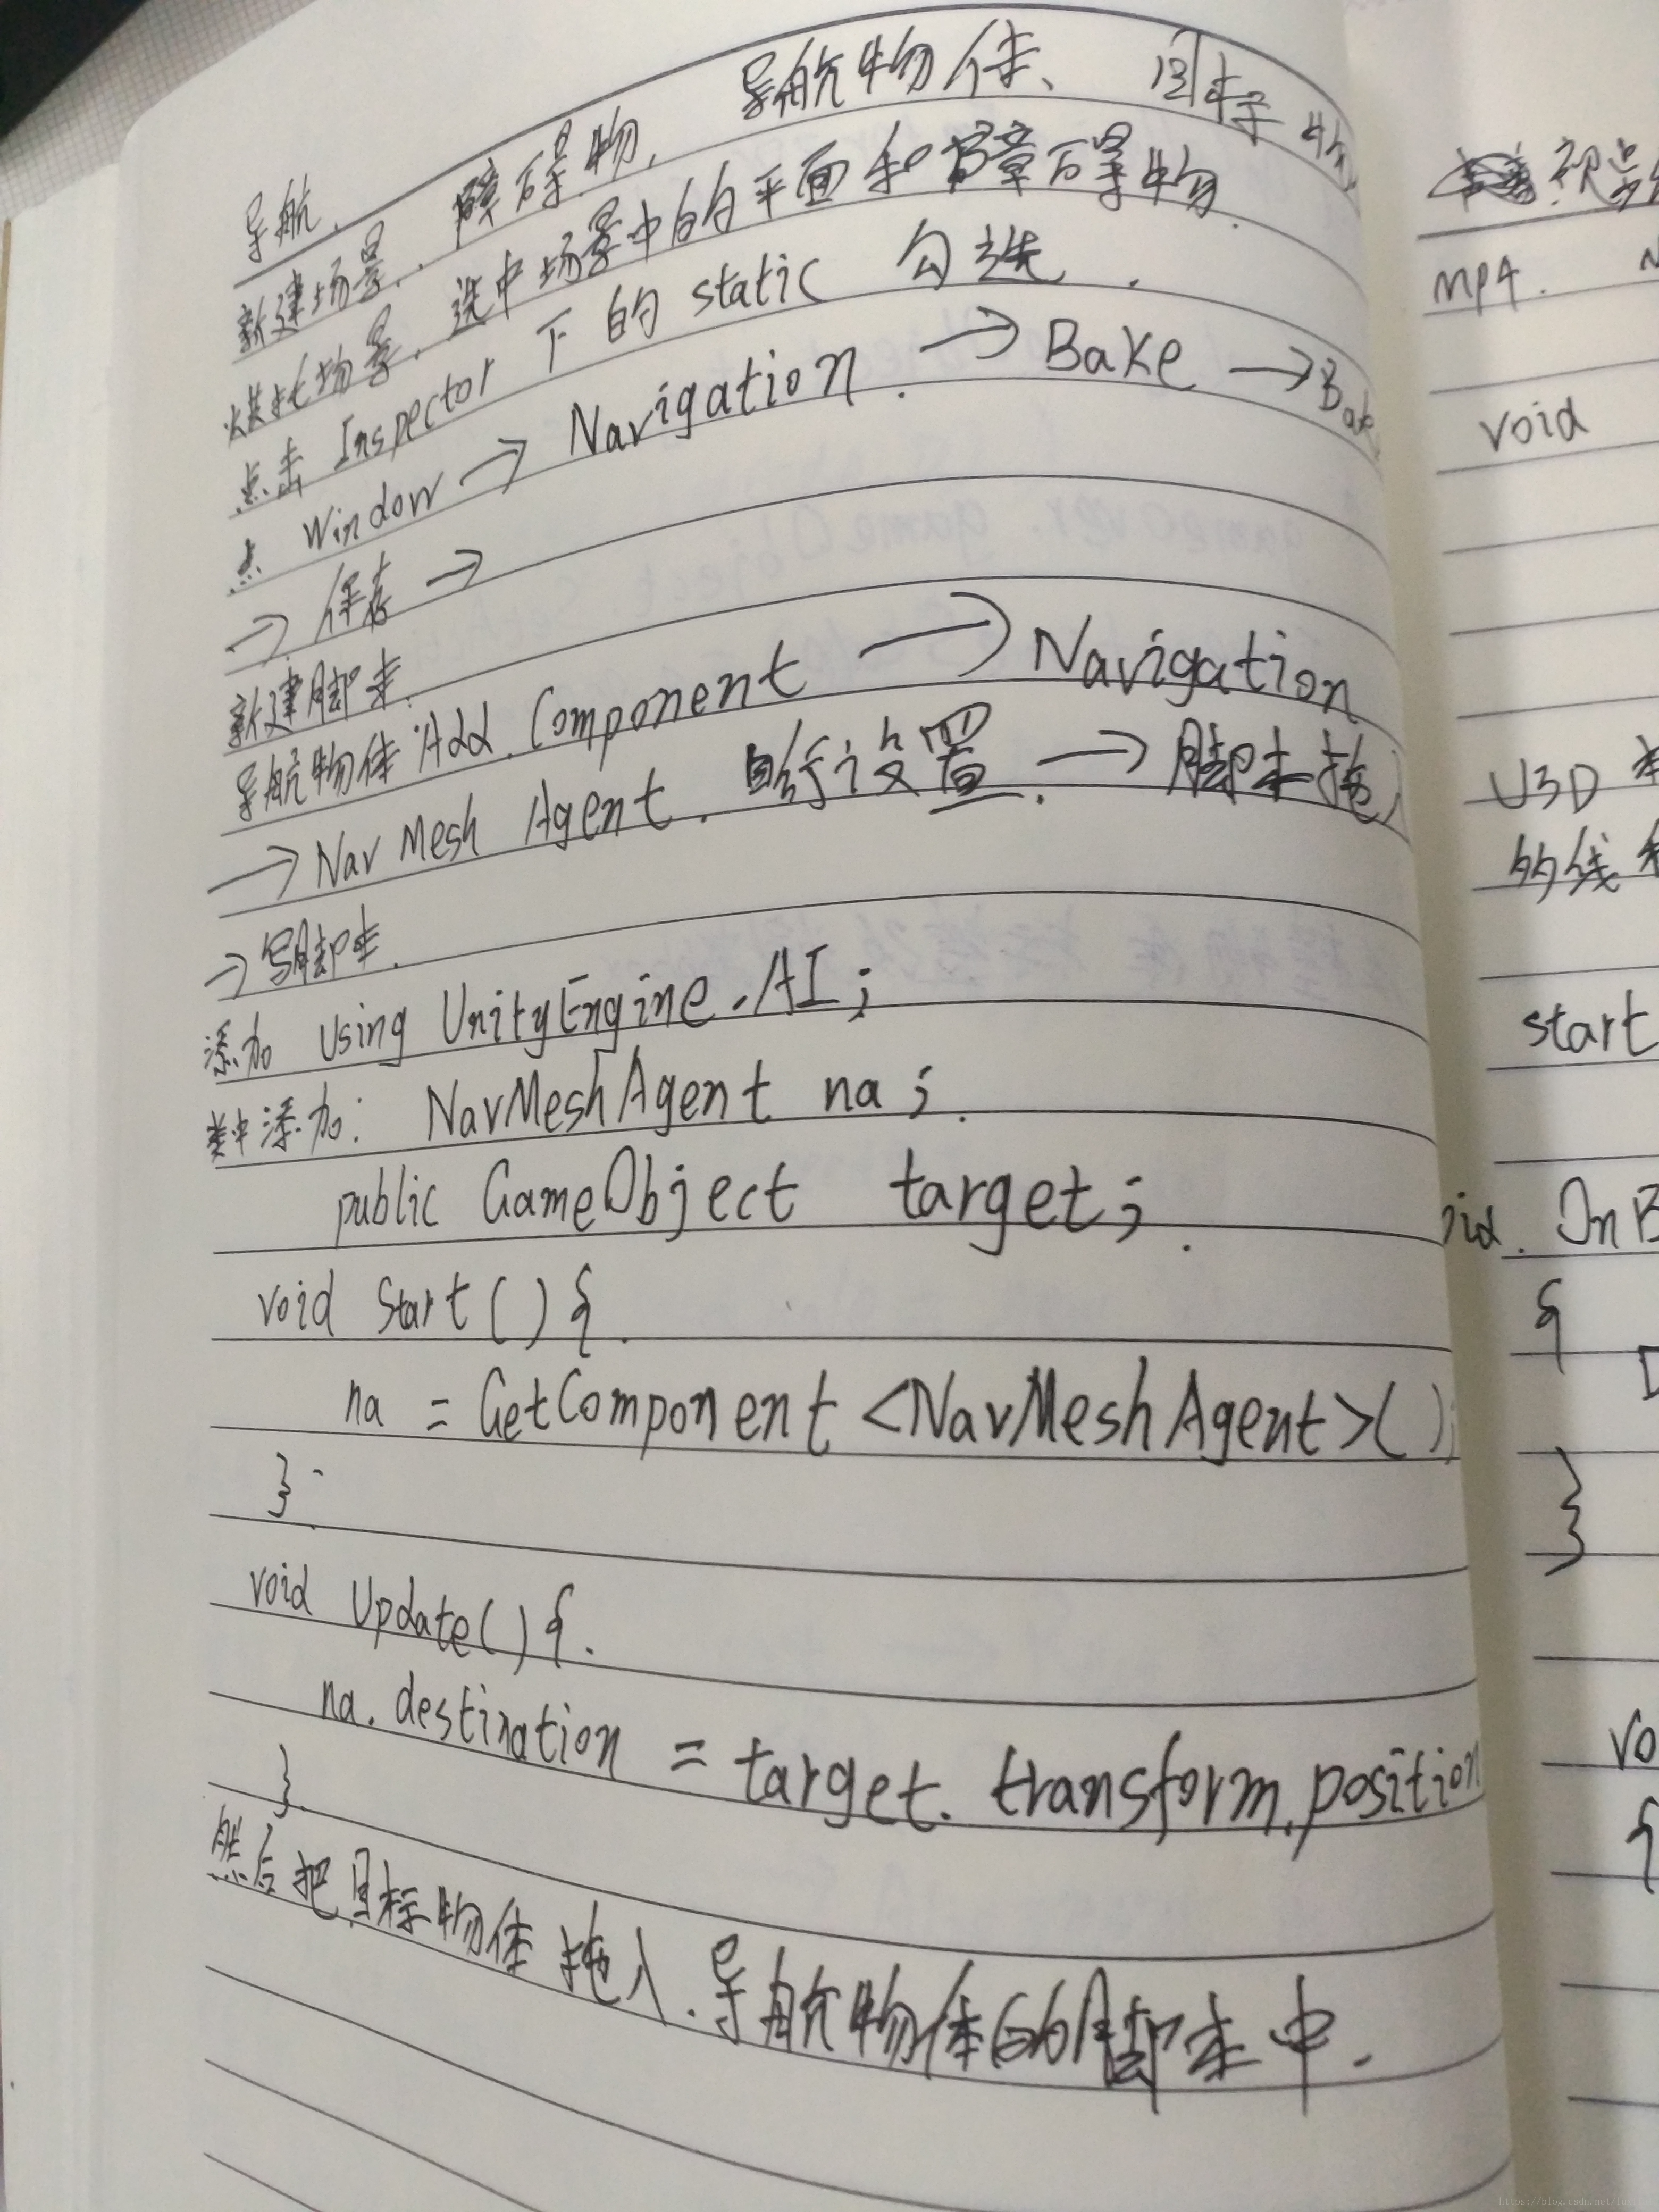 导航.
新建场景. 障碍物. 导航物体、目标物
烘托场景. 选中场景中的平面和障碍物.
点击 Inspector 下的 static 勾选.
点 Window → Navigation. → Bake → Bake
→ 保存 →
新建脚本.
导航物体 Add Component → Navigation
→ Nav Mesh Agent. 略设置. → 脚本拖入
→ 写脚本.
添加 using UnityEngine.AI;
类中添加: NavMeshAgent na;.
public GameObject target;.
void Start(){.
na = GetComponent<NavMeshAgent>();
}.
void Update(){.
na.destination = target.transform.position
}.
然后把目标物体拖入.导航物体的脚本中.
mp4.
void
U3D
的线
start
void. OnB
{
}
vo
{